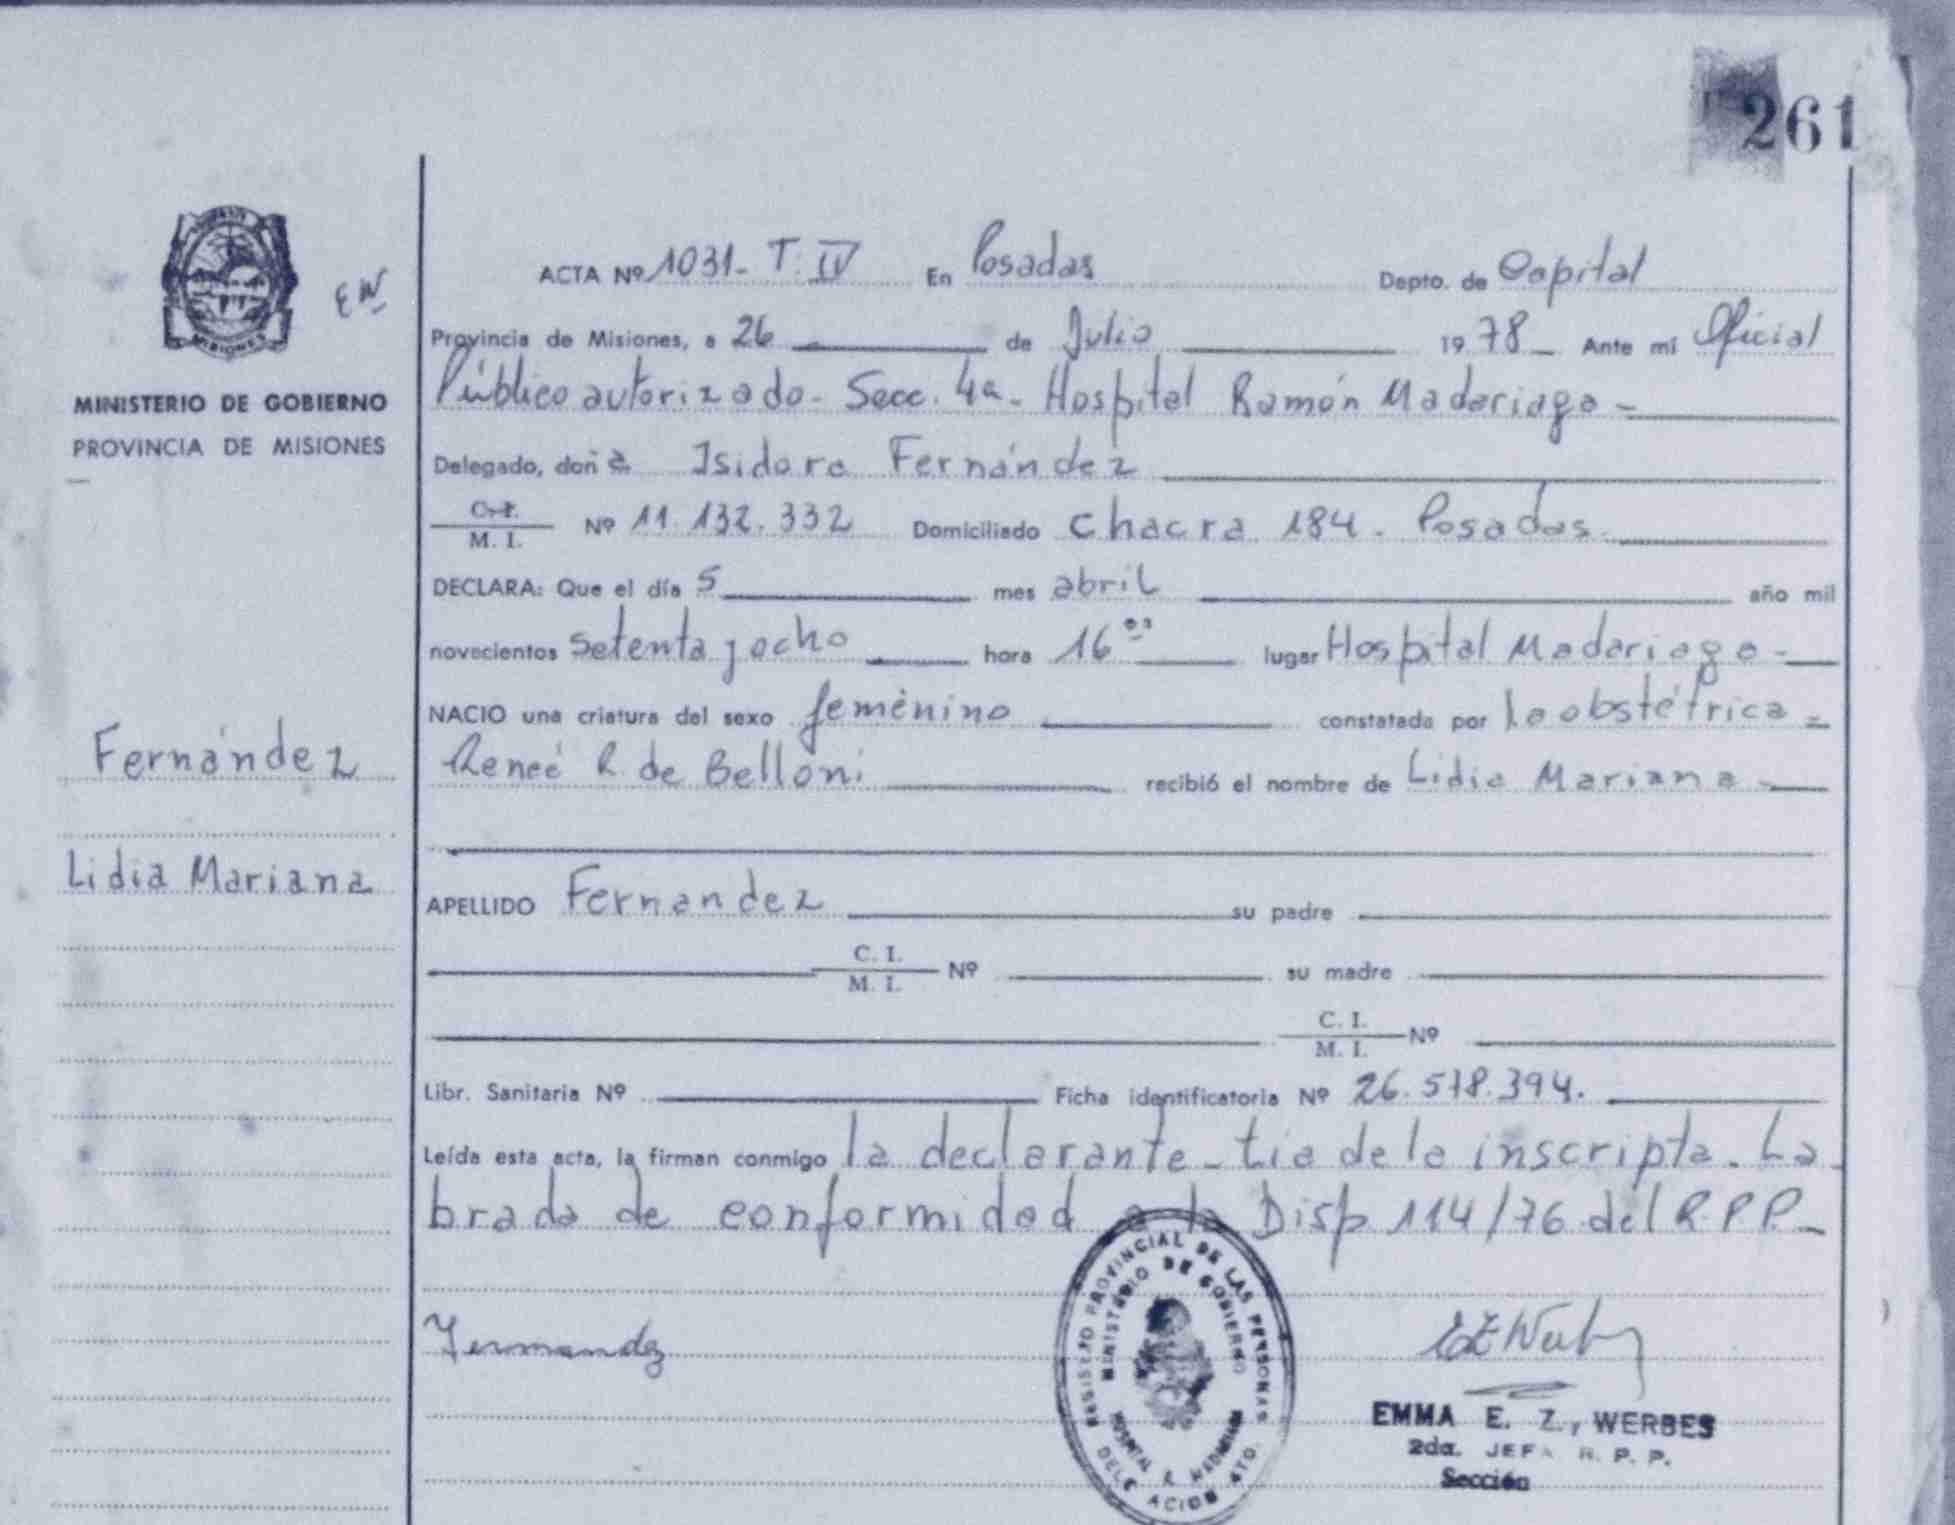 261
ACTA Nº 1031- T. IV En Posadas Depto. de Capital
EW
Provincia de Misiones, a 26 de Julio 1978 Ante mi Oficial
Público autorizado- Secc. 4a- Hospital Ramón Madariaga-
MINISTERIO DE GOBIERNO
PROVINCIA DE MISIONES
Delegado, doña Isidora Fernández
C. I. / M. I. Nº 11.132.332 Domiciliado Chacra 184. Posadas.
DECLARA: Que el día 5 mes abril año mil
novecientos setenta y ocho hora 16 lugar Hospital Madariaga-
NACIO una criatura del sexo femenino constatada por la obstétrica-
Reneé R. de Belloni recibió el nombre de Lidia Mariana-
Fernández
Lidia Mariana
APELLIDO Fernandez su padre
C. I. / M. I. Nº su madre
C. I. / M. I. Nº
Libr. Sanitaria Nº Ficha identificatoria Nº 26.578.394.
Leída esta acta, la firman conmigo la declarante- tia de la inscripta. La
brada de conformidad a la Disp 114/76 del R.P.P.-
Fernandez
REGISTRO PROVINCIAL DE LAS PERSONAS
MINISTERIO DE GOBIERNO
HOSPITAL R. MADARIAGA
EMMA E. Z. WERBES
2da. JEFA R. P. P.
Sección